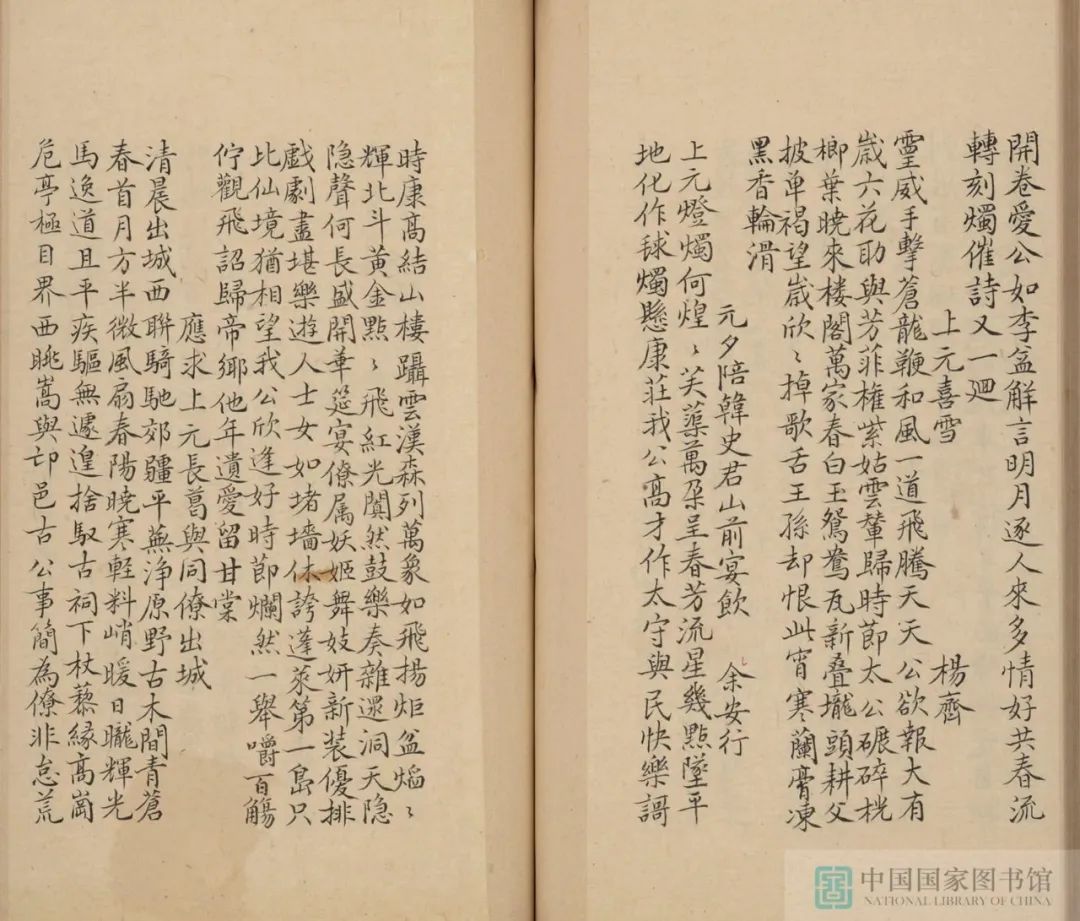 開卷愛公如李盆解言明月逐人來多情好共春流
轉刻燭催詩又一迴
上元喜雪 楊齊
靈威手擊蒼龍鞭和風一道飛騰天天公欲報大有
歲六花助與芳菲權紫姑雲輦歸時節太公碾碎桄
榔葉曉來楼閣萬家春白玉鴛鴦瓦新叠壠頭耕父
披单褐望歲欣〻掉歌舌王孫却恨此宵寒蘭膏凍
黑香輪滑
元夕陪韓史君山前宴飲 余安行
上元燈燭何煌〻芙蕖萬朵呈春芳流星幾點墜平
地化作毬燭懸康莊我公高才作太守與民快樂謌
時康高結山樓躡雲漢森列萬象如飛揚炬盆熖〻
輝北斗黄金點〻飛紅光闐然鼓樂奏雜遝洞天隐
隐聲何長盛開華筵宴僚属妖姬舞妓妍新装優排
戲劇盡堪樂遊人士女如堵墻休誇蓬萊第一島只
此仙境猶相望我公欣逢好時節爛然一舉嚼百觴
佇觀飛詔歸帝鄉他年遺愛留甘棠
應求上元長葛與同僚出城
清晨出城西聨騎馳郊疆平蕪浄原野古木間青蒼
春首月方半微風扇春陽曉寒輕料峭暖日曨輝光
馬逸道且平疾驅無遽遑捨馭古祠下杖藜緣高崗
危亭極目界西眺嵩與邙邑古公事簡為僚非怠荒
中国国家图书馆
NATIONAL LIBRARY OF CHINA